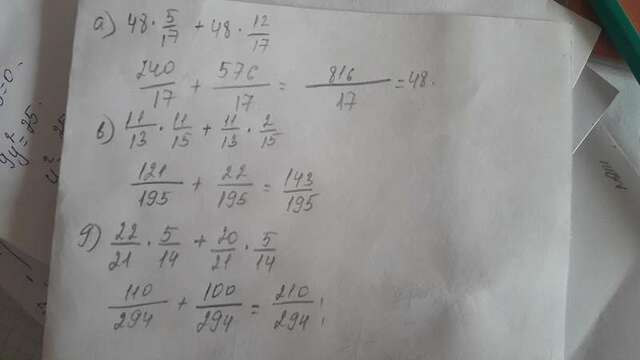 а) 48 · 5/17 + 48 · 12/17
240/17 + 576/17 = 816/17 = 48.
в) 11/13 · 11/15 + 11/13 · 2/15
121/195 + 22/195 = 143/195
д) 22/21 · 5/14 + 20/21 · 5/14
110/294 + 100/294 = 210/294 ;
9y² = 25.